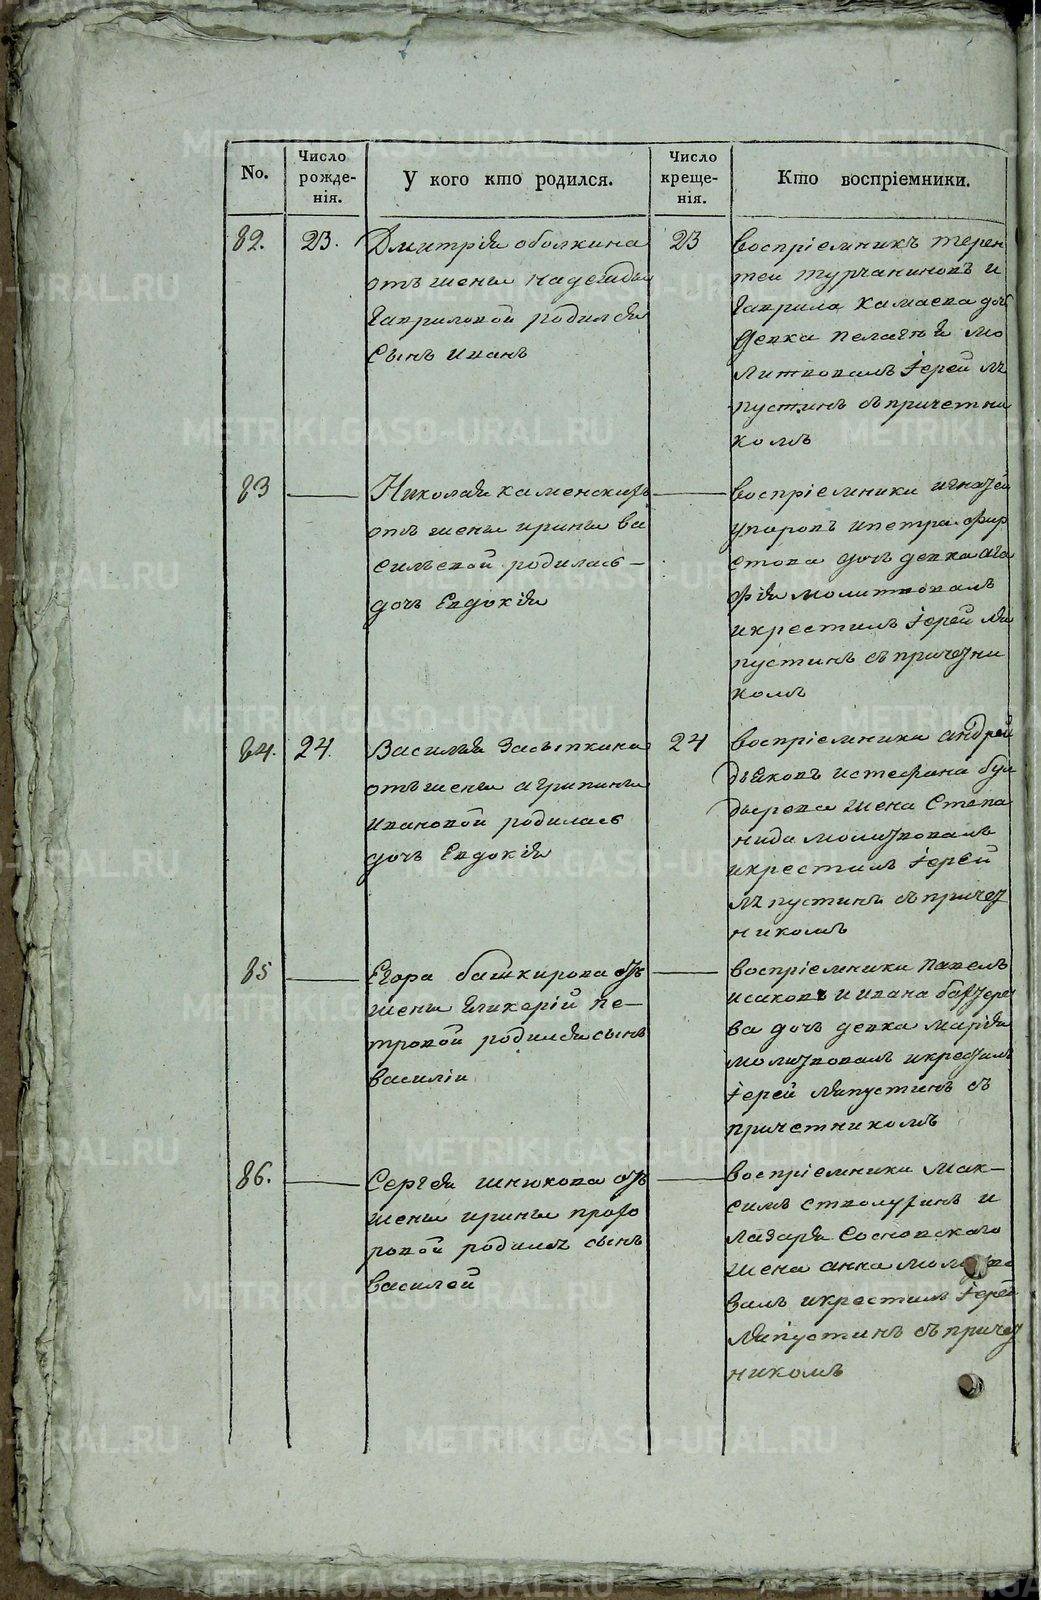 No.
Число рожде- нія.
У кого кто родился.
Число креще- нія.
Кто воспріемники.
82.
23.
Дмитрія оболкина
отъ жены надежды
Гавриловой родился
Сынъ иванъ
23
воспріемникъ терен
теи турчаниновъ и
Гаврила Камаева доч
девка пелагея мо
литвовалъ Іерей ля
пустинъ съ причетни
комъ
83
Николая каменскихъ
отъ жены ирины ва
сильевой родилась
дочь Евдокія
воспріемники игнатей
уваровъ и петра фир
стова дочь девка ага
фія молитвовалъ
и крестилъ Іерей ля
пустинъ съ причетни
комъ
84.
24.
Василья Засыпкина
отъ жены агрипины
ивановой родилась
дочь Евдокія
24
воспріемники андрей
дьяковъ и стефана бул
дырева жена Степа
нида молитвовалъ
и крестилъ Іерей
ляпустинъ съ причет
никомъ
85
Егора башкирова отъ
жены Гликерій пе-
тровой родился сынъ
василіи
воспріемники павелъ
исаковъ и ивана
ва дочь девка марія
молитвовалъ и крестилъ
Іерей ляпустинъ съ
причетникомъ
86.
Сергея шнюкова отъ
жены ирины прохо
ровой родился сынъ
василей
воспріемники мак-
симъ и
лазаря Сосновскаго
жена анна молитво
валъ и крестилъ Іерей
ляпустинъ съ причет
никомъ
METRIKI.GASO-URAL.RU